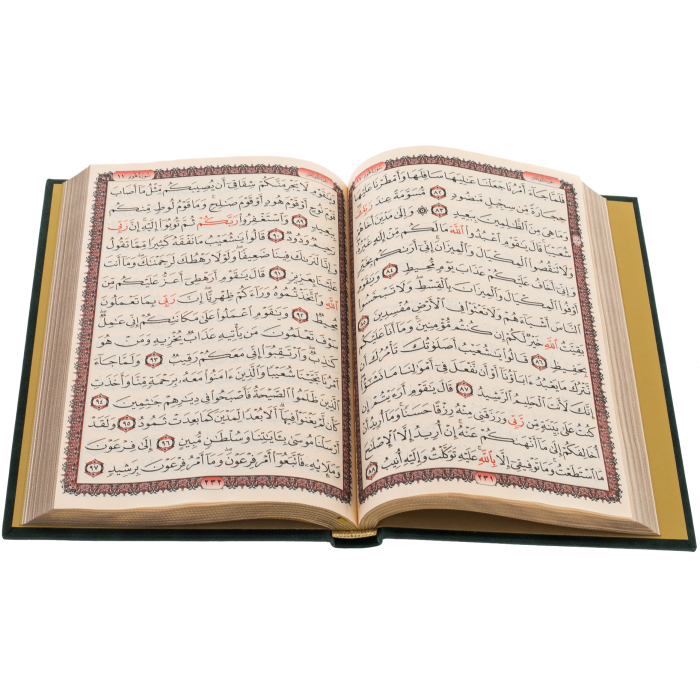 فَلَمَّا جَآءَ أَمْرُنَا جَعَلْنَا عَٰلِيَهَا سَافِلَهَا وَأَمْطَرْنَا عَلَيْهَا
حِجَارَةً مِّن سِجِّيلٍ مَّنضُودٍ ٨٢ مُّسَوَّمَةً عِندَ رَبِّكَ
وَمَا هِيَ مِنَ ٱلظَّٰلِمِينَ بِبَعِيدٍ ٨٣ ۞ وَإِلَىٰ مَدْيَنَ أَخَاهُمْ
شُعَيْبًا قَالَ يَٰقَوْمِ ٱعْبُدُوا۟ ٱللَّهَ مَا لَكُم مِّنْ إِلَٰهٍ غَيْرُهُۥ
وَلَا تَنقُصُوا۟ ٱلْمِكْيَالَ وَٱلْمِيزَانَ إِنِّيٓ أَرَىٰكُم بِخَيْرٍ
وَإِنِّيٓ أَخَافُ عَلَيْكُمْ عَذَابَ يَوْمٍ مُّحِيطٍ ٨٤ وَيَٰقَوْمِ
أَوْفُوا۟ ٱلْمِكْيَالَ وَٱلْمِيزَانَ بِٱلْقِسْطِ وَلَا تَبْخَسُوا۟
ٱلنَّاسَ أَشْيَآءَهُمْ وَلَا تَعْثَوْا۟ فِي ٱلْأَرْضِ مُفْسِدِينَ ٨٥
بَقِيَّتُ ٱللَّهِ خَيْرٌ لَّكُمْ إِن كُنتُم مُّؤْمِنِينَ وَمَآ أَنَا۠ عَلَيْكُم
بِحَفِيظٍ ٨٦ قَالُوا۟ يَٰشُعَيْبُ أَصَلَوٰتُكَ تَأْمُرُكَ أَن
نَّتْرُكَ مَا يَعْبُدُ ءَابَآؤُنَآ أَوْ أَن نَّفْعَلَ فِيٓ أَمْوَٰلِنَا مَا نَشَٰٓؤُا۟
إِنَّكَ لَأَنتَ ٱلْحَلِيمُ ٱلرَّشِيدُ ٨٧ قَالَ يَٰقَوْمِ أَرَءَيْتُمْ إِن
كُنتُ عَلَىٰ بَيِّنَةٍ مِّن رَّبِّي وَرَزَقَنِي مِنْهُ رِزْقًا حَسَنًا وَمَآ أُرِيدُ أَنْ
أُخَالِفَكُمْ إِلَىٰ مَآ أَنْهَىٰكُمْ عَنْهُ إِنْ أُرِيدُ إِلَّا ٱلْإِصْلَٰحَ
مَا ٱسْتَطَعْتُ وَمَا تَوْفِيقِيٓ إِلَّا بِٱللَّهِ عَلَيْهِ تَوَكَّلْتُ وَإِلَيْهِ أُنِيبُ ٨٨
٢٣١
وَيَٰقَوْمِ لَا يَجْرِمَنَّكُمْ شِقَاقِيٓ أَن يُصِيبَكُم مِّثْلُ مَآ أَصَابَ
قَوْمَ نُوحٍ أَوْ قَوْمَ هُودٍ أَوْ قَوْمَ صَٰلِحٍ وَمَا قَوْمُ لُوطٍ مِّنكُم
بِبَعِيدٍ ٨٩ وَٱسْتَغْفِرُوا۟ رَبَّكُمْ ثُمَّ تُوبُوٓا۟ إِلَيْهِ إِنَّ رَبِّي
رَحِيمٌ وَدُودٌ ٩٠ قَالُوا۟ يَٰشُعَيْبُ مَا نَفْقَهُ كَثِيرًا مِّمَّا تَقُولُ
وَإِنَّا لَنَرَىٰكَ فِينَا ضَعِيفًا وَلَوْلَا رَهْطُكَ لَرَجَمْنَٰكَ وَمَآ أَنتَ
عَلَيْنَا بِعَزِيزٍ ٩١ قَالَ يَٰقَوْمِ أَرَهْطِيٓ أَعَزُّ عَلَيْكُم مِّنَ
ٱللَّهِ وَٱتَّخَذْتُمُوهُ وَرَآءَكُمْ ظِهْرِيًّا إِنَّ رَبِّي بِمَا تَعْمَلُونَ
مُحِيطٌ ٩٢ وَيَٰقَوْمِ ٱعْمَلُوا۟ عَلَىٰ مَكَانَتِكُمْ إِنِّي عَٰمِلٌ
سَوْفَ تَعْلَمُونَ مَن يَأْتِيهِ عَذَابٌ يُخْزِيهِ وَمَنْ هُوَ
كَٰذِبٌ وَٱرْتَقِبُوٓا۟ إِنِّي مَعَكُمْ رَقِيبٌ ٩٣ وَلَمَّا جَآءَ
أَمْرُنَا نَجَّيْنَا شُعَيْبًا وَٱلَّذِينَ ءَامَنُوا۟ مَعَهُۥ بِرَحْمَةٍ مِّنَّا وَأَخَذَتِ
ٱلَّذِينَ ظَلَمُوا۟ ٱلصَّيْحَةُ فَأَصْبَحُوا۟ فِي دِيَٰرِهِمْ جَٰثِمِينَ ٩٤
كَأَن لَّمْ يَغْنَوْا۟ فِيهَآ أَلَا بُعْدًا لِّمَدْيَنَ كَمَا بَعِدَتْ ثَمُودُ ٩٥ وَلَقَدْ
أَرْسَلْنَا مُوسَىٰ بِـَٔايَٰتِنَا وَسُلْطَٰنٍ مُّبِينٍ ٩٦ إِلَىٰ فِرْعَوْنَ
وَمَلَإِي۟هِ فَٱتَّبَعُوٓا۟ أَمْرَ فِرْعَوْنَ وَمَآ أَمْرُ فِرْعَوْنَ بِرَشِيدٍ ٩٧
٢٣٢